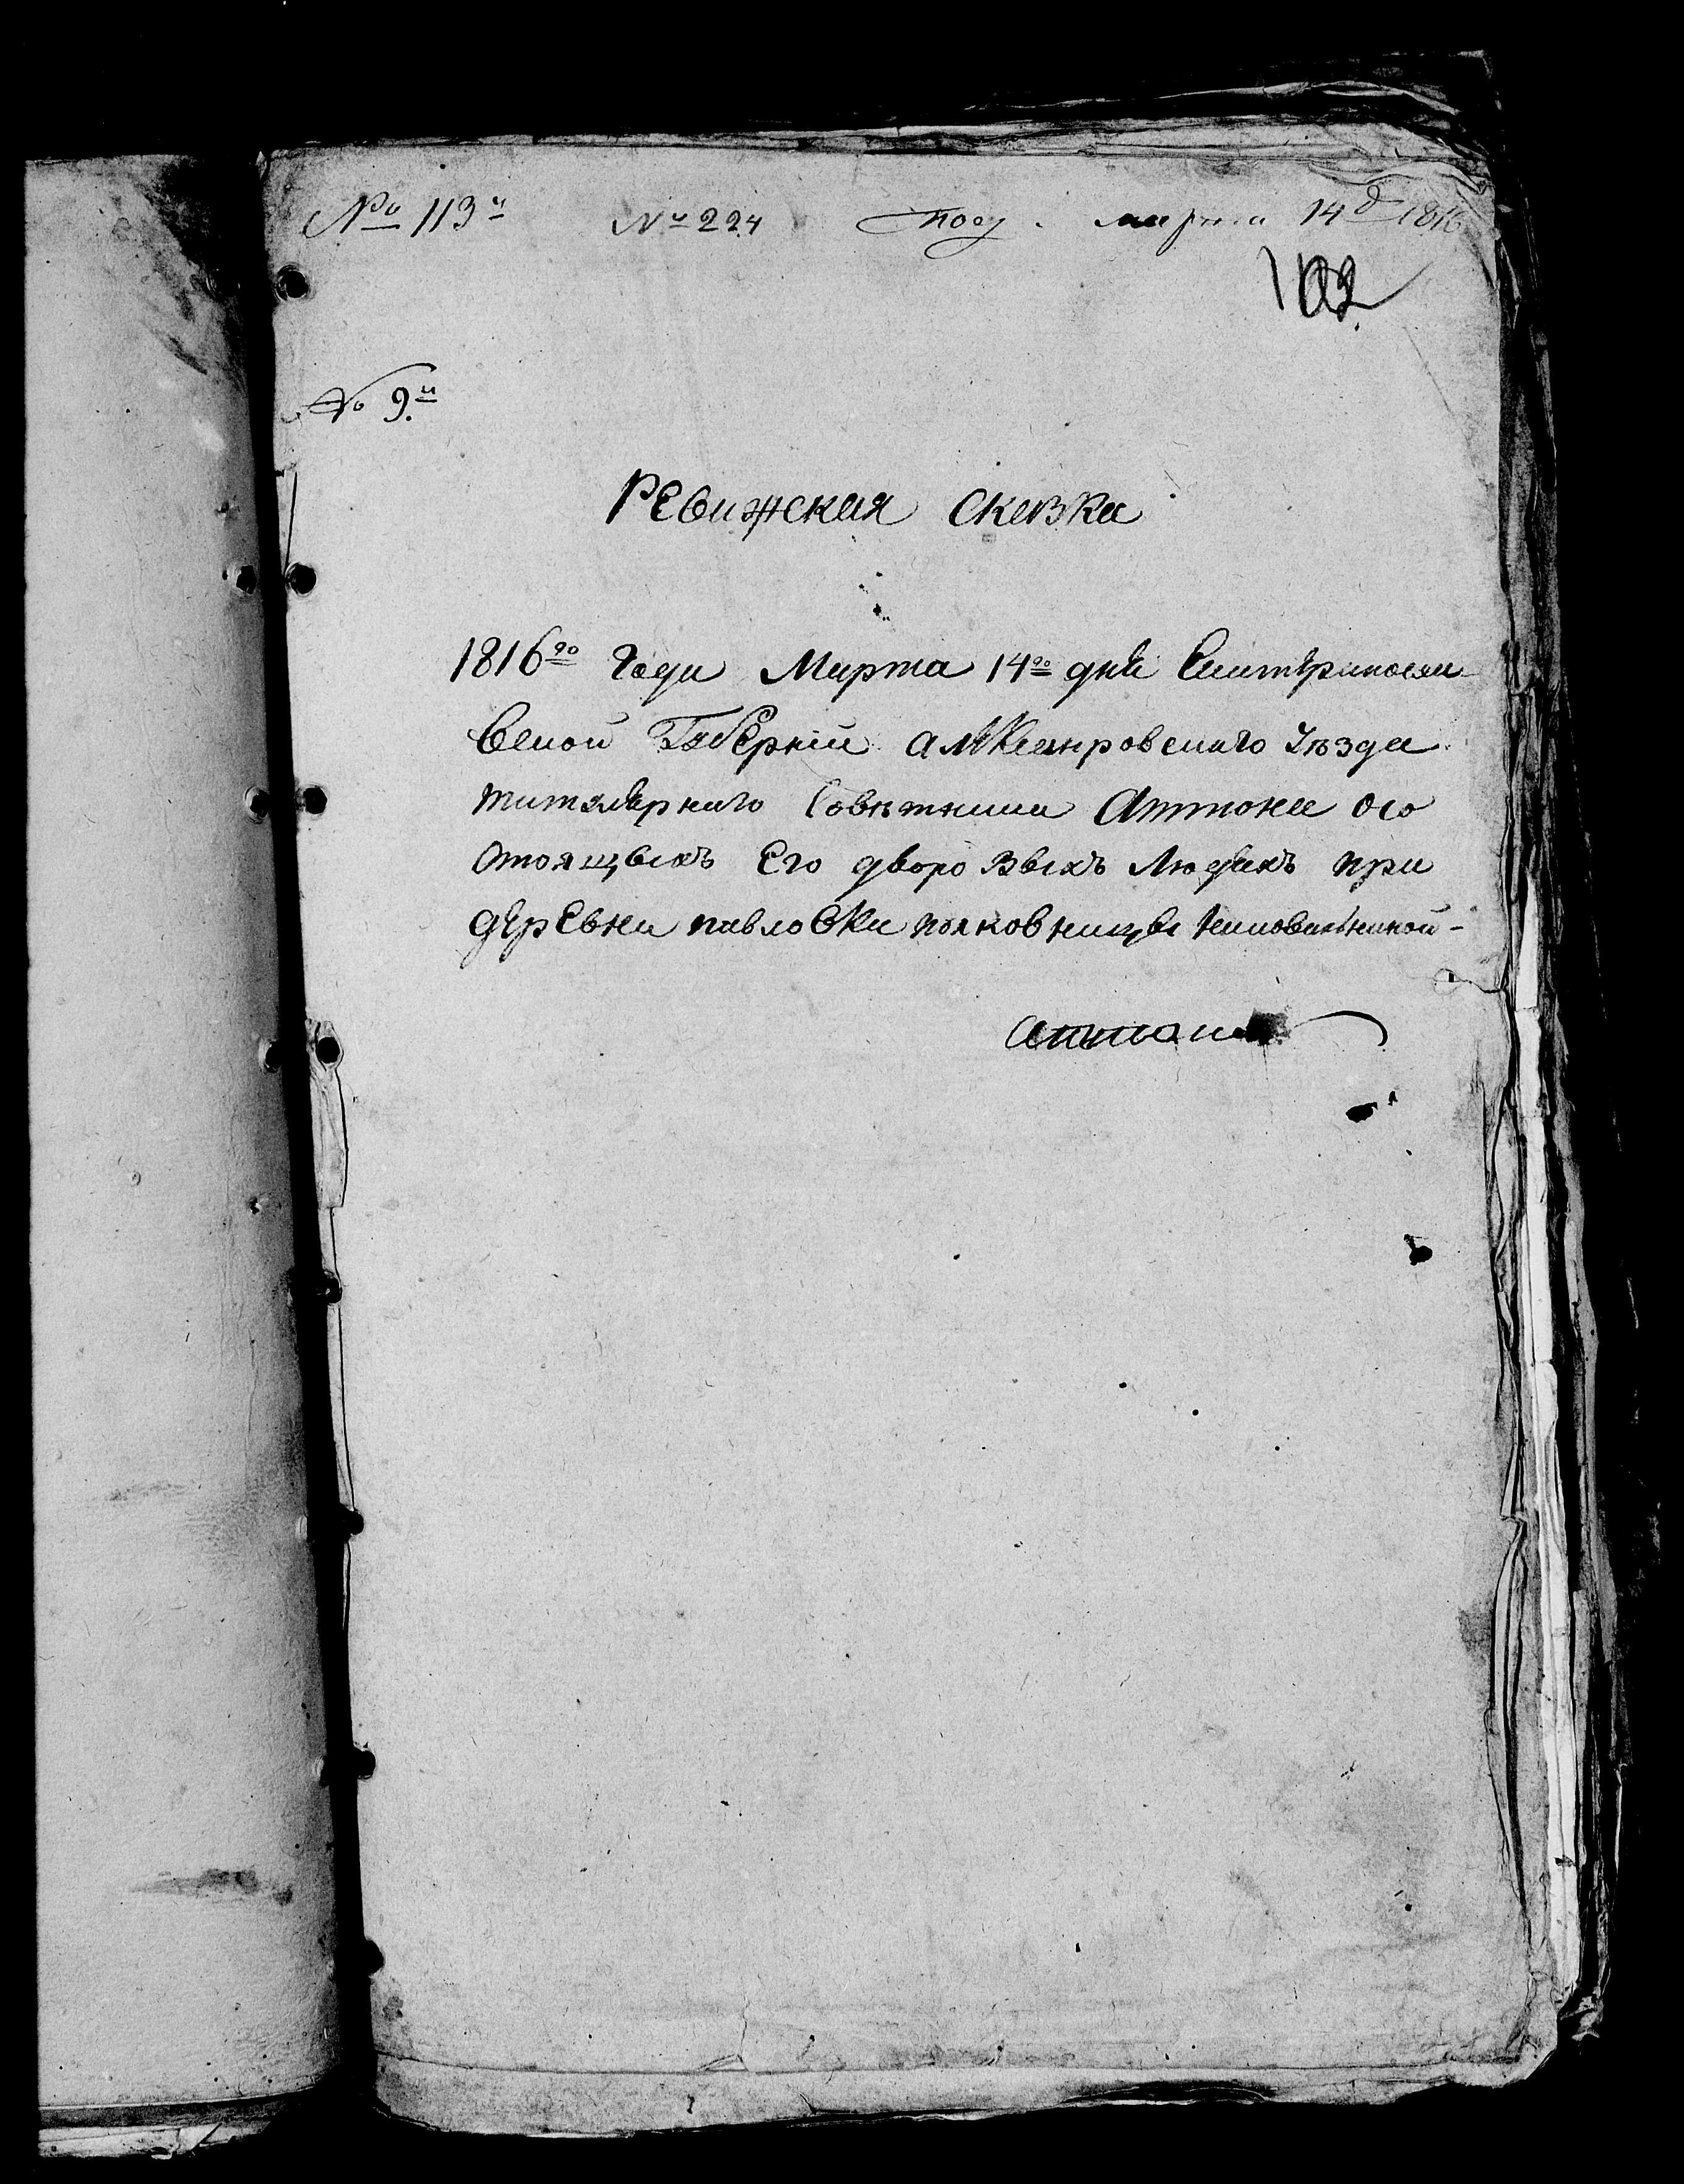 № 113й № 224 под. марта 14д 1816
102
№ 9.й
Ревижская сказка
1816го Года Марта 14го дня Екатеринослав
Ской Губерніи Уезда
титулярнаго Советника Аттона осо
стоящыхъ Его дворовыхъ Людяхъ при
деревни павловки полковницы